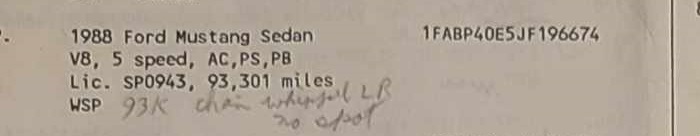 1988 Ford Mustang Sedan 1FABP40E5JF196674
V8, 5 speed, AC,PS,PB
Lic. SP0943, 93,301 miles
WSP 93K chain LB
no spot